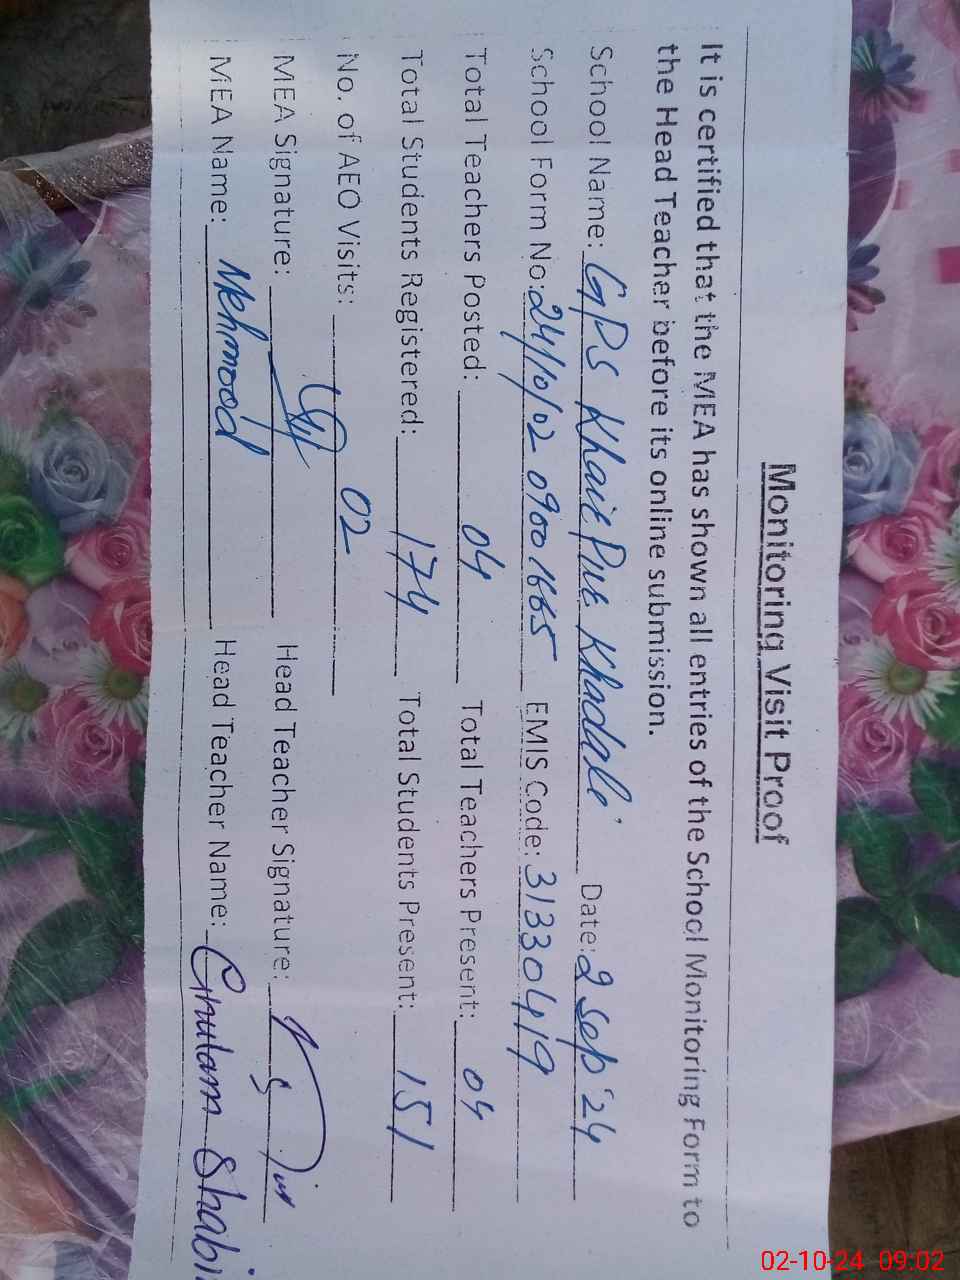 Monitoring Visit Proof
It is certified that the MEA has shown all entries of the School Monitoring Form to
the Head Teacher before its online submission.
School Name: GPS Khair Pur Khadali Date: 2 Sep '24
School Form No: 24/10/02 09001665 EMIS Code: 31330419
Total Teachers Posted: 04 Total Teachers Present: 04
Total Students Registered: 174 Total Students Present: 151
No. of AEO Visits: 02
MEA Signature: Head Teacher Signature:
MEA Name: Mehmood Head Teacher Name: Ghulam Shabi
02-10-24 09:02